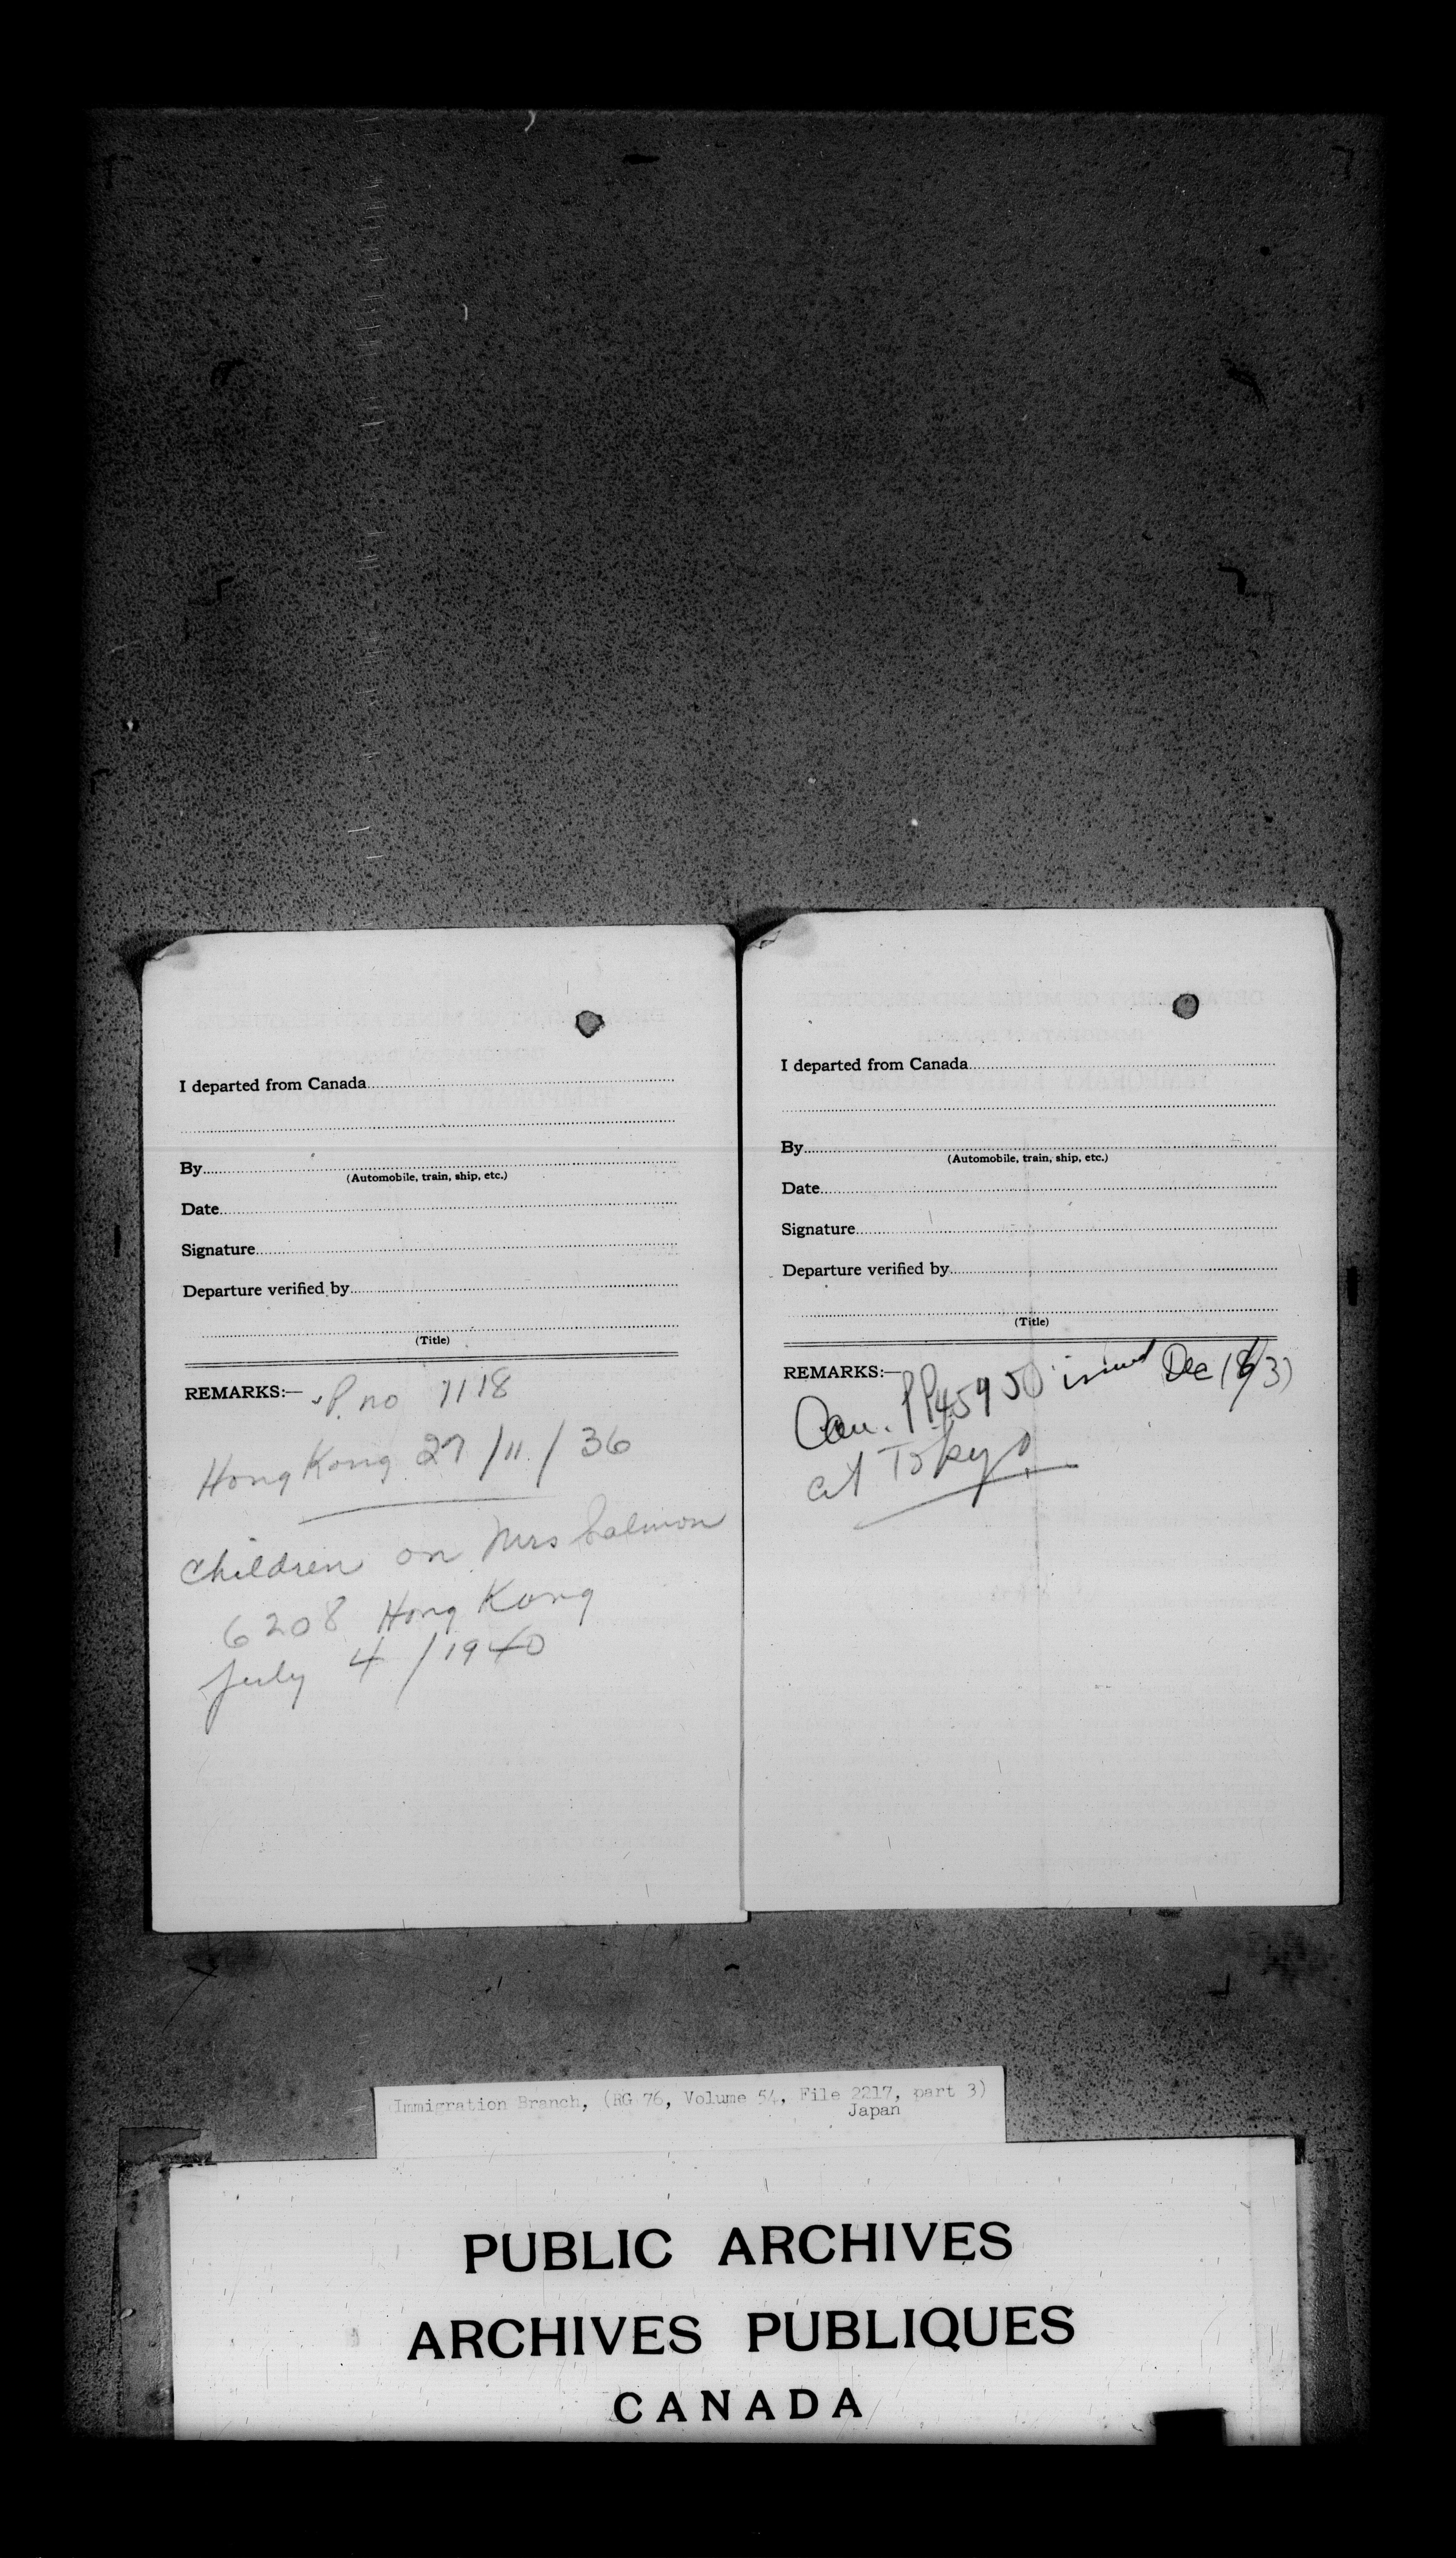 I departed from Canada
By
(Automobile, train, ship, etc.)
Date
Signature
Departure verified by
(Title)
REMARKS:— P. no 7118
Hong Kong 27/11/36
Children on Mrs Salmon
6208 Hong Kong
July 4/1940
I departed from Canada
By
(Automobile, train, ship, etc.)
Date
Signature
Departure verified by
(Title)
REMARKS:—
Can. PP45950 issued Dec
at Tokyo
Immigration Branch, (RG 76, Volume 54, File 2217, part 3)
Japan
PUBLIC ARCHIVES
ARCHIVES PUBLIQUES
CANADA